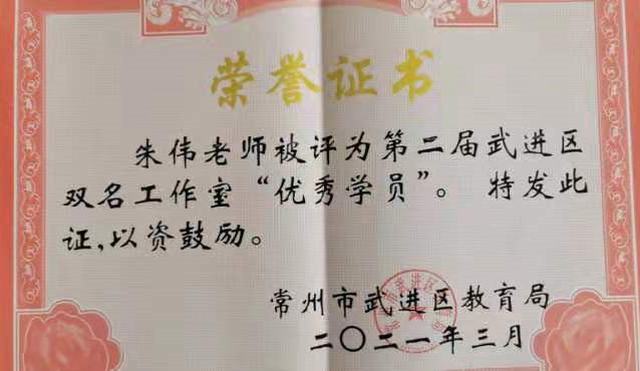 荣誉证书
朱伟老师被评为第二届武进区
双名工作室“优秀学员”。特发此
证,以资鼓励。
常州市武进区教育局
二〇二一年三月